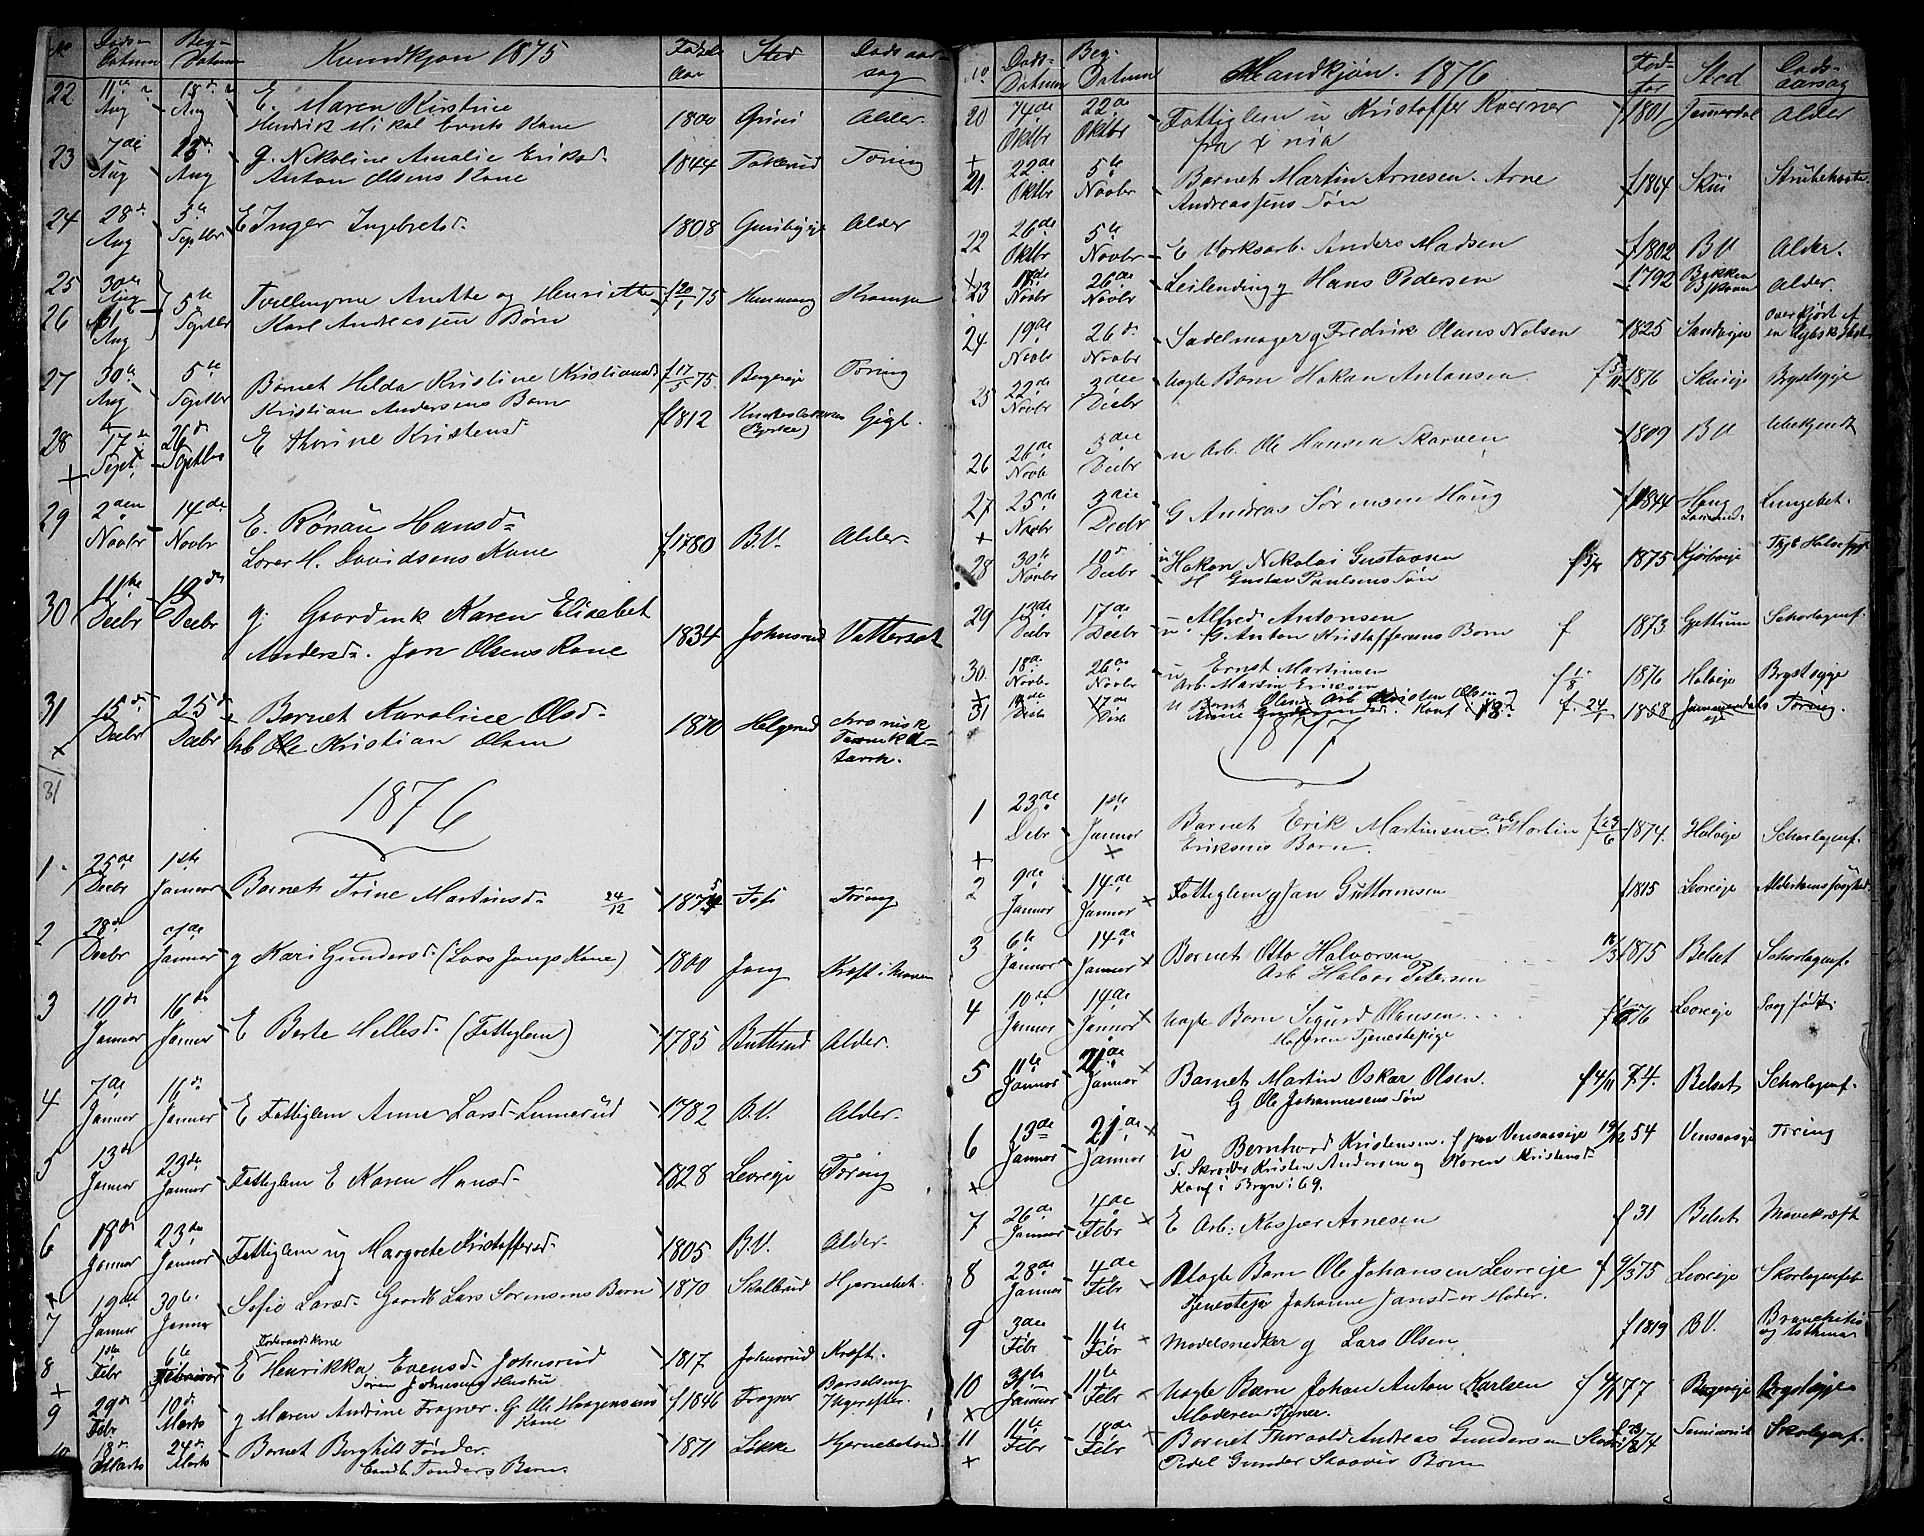 No Døds-Datum Beg-Datum Kvindkjøn 1875 Fødsels Aar Sted Døds aarsag
22 11te Aug 18de Aug E. Maren Kirstine
Hendrik Mikal Events Kone 1800 Grini Alder
23 7de Aug 23de Aug g. Nikoline Amalie Eriksd.
Anton Olsens Kone 1844 Tokerud Tæring
24 28de Aug 5te Septbr E Inger Ingebretsd. 1808 Alder
25 30te Aug
26 31te Aug 5te Septbr Tvillingerne Anette og Henriette
Karl Andreassen Børn f 20/1 75 Krampe
27 30te Aug 5te Septbr Barnet Hilda Kristine Kristiansd.
Kristian Andersens Barn f 17/5 75. Bergereje Tæring
28 17de Sept. 26de Septbr E Thorine Kristensd. f 1812 Gigt.
29 2den Novbr 14de Novbr E. Rønau Hansd.
Lorer H. Davidsens Kone f 1780 B.V. Alder
30 11te Decbr 19de Decbr g. Gaardmk Karen Elisabet
Andersd. Jon Olsens Kone 1834 Johnsrud Vattersot
31 15de Decbr 25de Decbr Barnet Karoline Olsd.
Arb Ole Kristian Olsen 1870 Helgerud chronisk
Tarmkatarrh.
31
1876
1 25de Decbr 1ste Januar Barnet Trine Martinsd. 24/12 1875 Tæring
2 28de Decbr 7de Januar g Kari Gundersd. (Lars Jongs Kone) 1800 Jong Kræft i Maven
3 10de Januar 16de Januar E Berte Hellesd. (Fattiglem) 1785 Butterud Alder.
4 7de Januar 16de Januar E Fattiglem Anne Larsd. Lunnerud 1782 B.V. Alder.
5 13de Januar 23de Januar Fattiglem E Karen Hansd. 1828 Levreje Tæring
6 18de Januar 23de Januar Fattiglem ug Margrete Kristoffersd. 1805 B.V. Alder.
7 19de Januar 30te Januar Sofie Larsd. Gaardb Lars Sørensens Barn 1870 Skollerud Hjernebet.
Føderaadskone
8 1ste Febr 6te Februar E Henrikka Evensd. Johnsrud 1817 Johnsrud Kræft.
9 29de Febr. 10de Marts g Maren Andrine Frogner. G. Ole Mogensens
Kone f 1846 Frogner Barselseng
10 18de Marts 24de Marts Barnet Borghild Tønder.
Candt. Tønders Barn. 1871 Løkke Hjernebetænd.
No Døds-Datum Beg-Datum Mandkjøn. 1876 Fød-Aar Sted Døds-aarsag
20 14de Oktbr 22de Oktbr Fattiglem u Kristoffer Kværner
fra 1801 Alder
21. 22de Oktbr 5te Novbr Barnet Martin Arnesen. Arne
Andreassens Søn f 1864 Skui Strubehoste.
22 26de Oktbr 5te Novbr E Værksarb. Anders Madsen f 1802 B.V. Alder.
23 18de Novbr 26de Novbr Leilending g Hans Pedersen 1792 Alder.
24 19de Novbr 26de Novbr Sadelmager g Fredrik Olaus Nelsen 1825 Sandvigen Overkjørt af
25 22de Novbr 3die Decbr Uægte Barn Hakon Antonsen. f 5/11 1876 Skuieje Brystsyge
26 26de Novb 3die Decbr u Arb. Ole Hansen Skarven 1809 B.V. Ubekjendt
27 25de Novbr 3die Decbr G Andreas Sørensen Haug f 1844 Haug Lungebet.
28 30te Novbr 10de Decbr u Hakon Nikolai Gustavsen
H Gustav Paulsens Søn f 1875 Kjørboeje
29 13de Decbr 17de Decbr u Alfred Antonsen
G. Anton Kristoffersens Barn f 1873 Gjettum Skarlagensf.
30. 18de Novb. 26de Novbr u Ernst Martinsen
Arb. Martin Eriksen f 1/8 1876 Holveje Brystsyge
31 Decbr Decbr u Bernt Olsen Arb Kristen Olsen og
Anne Konf. i 18 f. 24/1 1858 Tæring.
1877
1 23de Debr 1ste Januar Barnet Erik Martinsen Arb. Martin
Eriksens Barn f 23/6 1874. Holveje Scharlagensf.
2 9de Januar 14de Januar Fattiglem g Jan Guttormsen f 1815 Levreje Alderdomssvaghed.
3 6te Januar 14de Januar Barnet Otto Halvorsen
Arb Halvor Petersen 1875 Belset Scharlagensf.
4 10de Januar 14de Januar Uægte Barn Sigurd Olausen
Moderen Tjenestepige 76 Levreje Svagfødt.
5 11te Januar 21de Januar Barnet Martin Oskar Olsen.
G Ole Johannesens Søn f 4/11 74. Belset Scharlagensf.
6 13de Januar 21de Januar U Bernhard Kristensen. f paa Vensaaseje 19/12 54 Vensaaseje Tæring
F. Skrædder Kristen Andersen og Karen Kristensd.
Konf i Bryn i 69.
7 26de Januar 4de Febr E Arb. Kasper Arnesen f 31 Belset Mavekræft
8 28de Januar 4de Febr Uægte Barn Ole Johansen Levreje f 9/3 75 Levreje Skarlagenfeb
Tjenestepi Johanne Jansd. er Moder.
9 3die Febr 11te Febr Modelsnedker g Lars Olsen f 1819 B.V. Bronchitis
og Asthma
10 31te Januar 11te Febr Uægte Barn Johan Anton Karlsen
Moderen Tjener. f 4/1 77 Brystsyge
11 11te Febr 18de Febr Barnet Thorvald Andreas Gundersen
Pedel Gunder Skovvis Barn 74 Seminariet Skarlagensf.